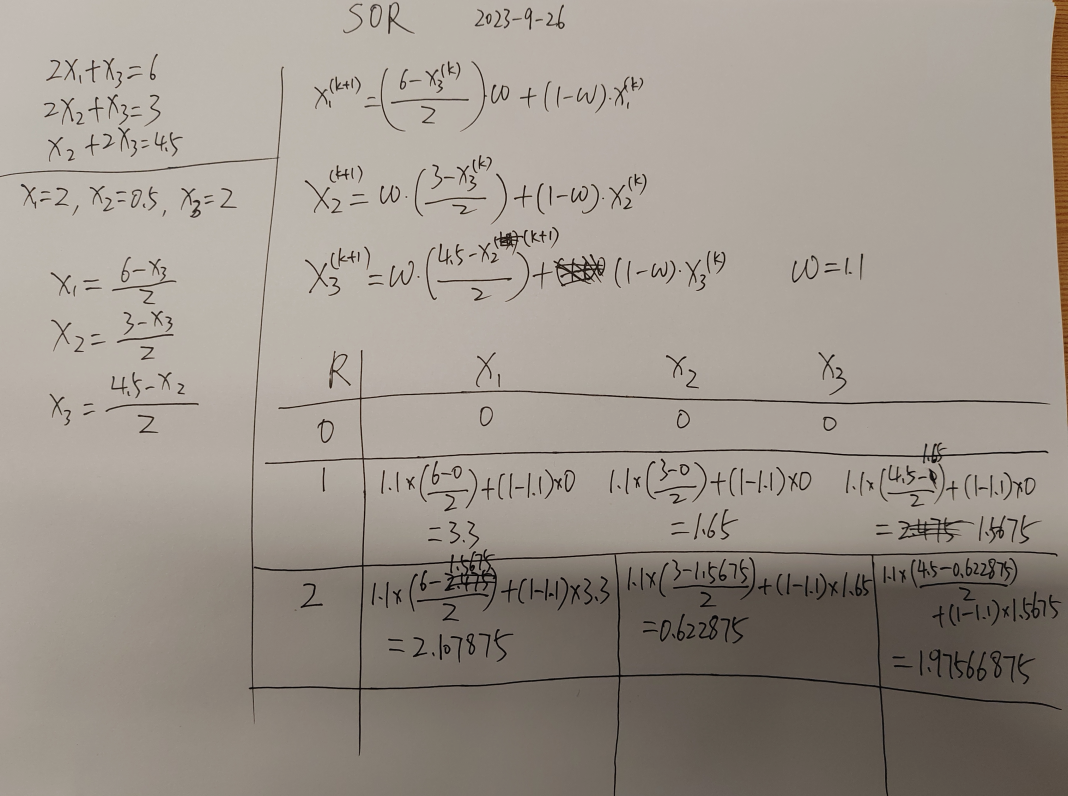 SOR 2023-9-26
2X₁+X₃=6
2X₂+X₃=3
X₂+2X₃=4.5
X₁=2, X₂=0.5, X₃=2
X₁=(6-X₃)/2
X₂=(3-X₃)/2
X₃=(4.5-X₂)/2
X₁^(k+1)=((6-X₃^(k))/2)·ω+(1-ω)·X₁^(k)
X₂^(k+1)=ω·((3-X₃^(k))/2)+(1-ω)·X₂^(k)
X₃^(k+1)=ω·((4.5-X₂^(k+1))/2)+(1-ω)·X₃^(k) ω=1.1
R X₁ X₂ X₃
0 0 0 0
1 1.1×((6-0)/2)+(1-1.1)×0 1.1×((3-0)/2)+(1-1.1)×0 1.1×((4.5-1.65)/2)+(1-1.1)×0
=3.3 =1.65 =2.475 1.5675
2 1.1×((6-1.5675)/2)+(1-1.1)×3.3 1.1×((3-1.5675)/2)+(1-1.1)×1.65 1.1×(4.5-0.622875)/2
+(1-1.1)×1.5675
=2.107875 =0.622875 =1.97566875